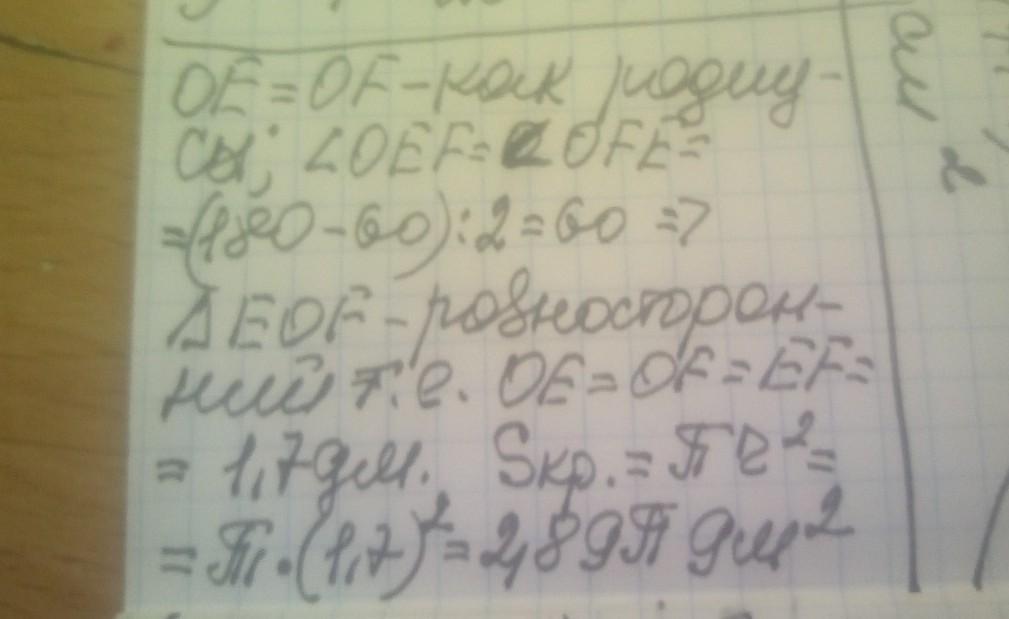 OE=OF-как радиу-
сы; ∠OEF=∠OFE=
=(180-60):2=60 =>
ΔEOF-равносторон-
ний т.е. OE=OF=EF=
= 1,7дм. Sкр.=πr²=
=π·(1,7)²=2,89π дм²